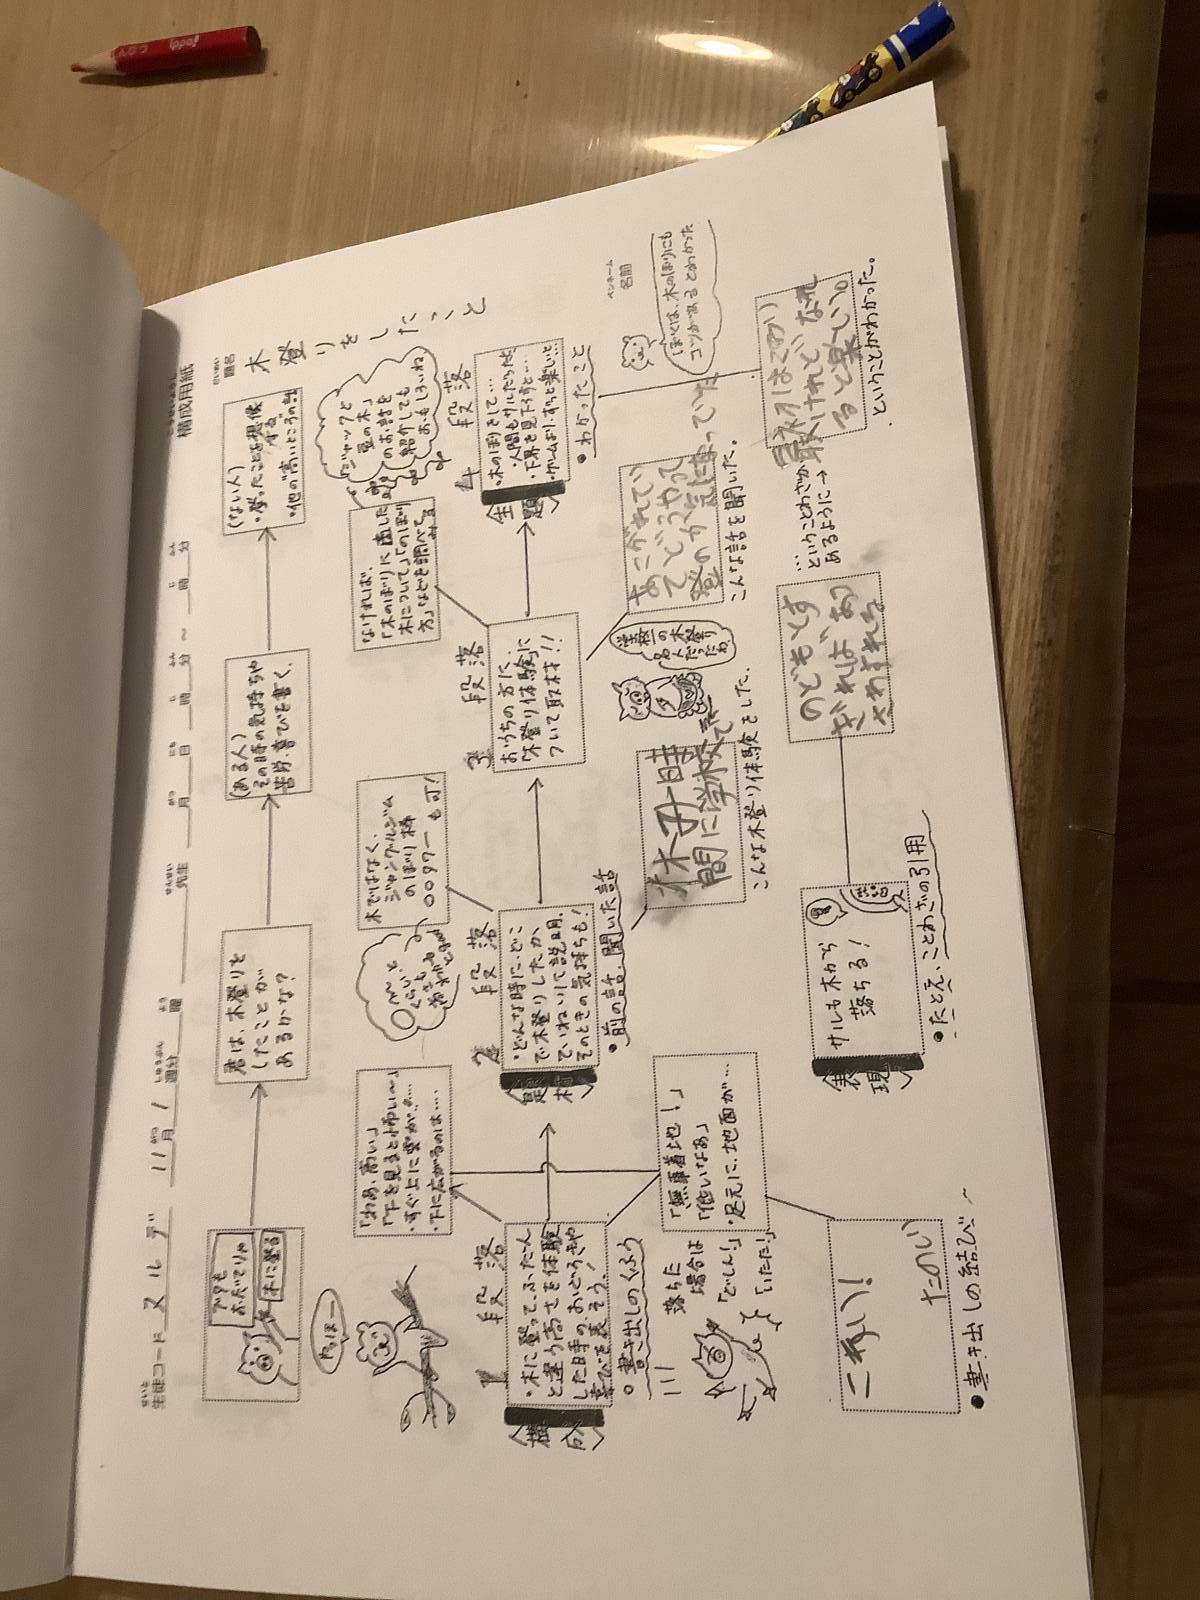 構成用紙
生徒コード ヌルデ 11月1週分 曜 先生 月 日 時 分 ~ 時 分
題名 木登りをしたこと
ペンネーム
名前
ブタも
おだてりゃ
木に登る
君は、木登りを
したことが
あるかな?
(ある人)
その時の気持ちや
苦労・喜びを書く。
(ない人)
・登ったことを想像
する
・他の「高いところ」の話
やっほー
「わあ、高い」
「下を見ると怖い〜」
・すぐ上に雲が…
・下に広がるのは…
木ではなく、
ジャングルジム
のぼり棒
〇〇タワーも可!
なければ、
「木のぼりに適した
木について」「のぼり
方」などを調べて
「ジャックと
豆の木」
のお話を
紹介しても
おもしろいね
〈構成〉
1段落
・木に登って、ふだん
と違う高さを体験
した時の、おどろきや
喜びを表そう!
○書き出しのくふう
〈題材〉
2段落
・どんな時に、どこ
で木登りしたか、
ていねいに説明。
そのときの気持ちも!
●前の話、聞いた話
3段落
おうちの方に、
「木登り体験」に
ついて取材!!
〈主題〉
4段落
・木のぼりをして…
・人間もサルだった
・下界を見下ろすと…
・ゲームより、ずっと楽しいと…
●わかったこと
落ちた
場合は
「どしん!」
「いたた!」
「無事着地!」
「低いなあ」
・足元に、地面が…
休み時
間に学校で
こんな木登り体験をした。
学校の木登り
名人だったわ
あこがれてい
てどうやって
登のか気に
なっていた
こんな話を聞いた。
ぼくは、木のぼりにも
コツがあるとわかった
こわい!
たのし
●書き出しの結び
〈表現〉
サルも木から
落ちる!
●たとえ、ことわざの引用
のどもとす
ぎればあつ
さわすれる
…ということわざが
あるように→
最初はこわい
けれどなれ
ると楽しい。
ということがわかった。